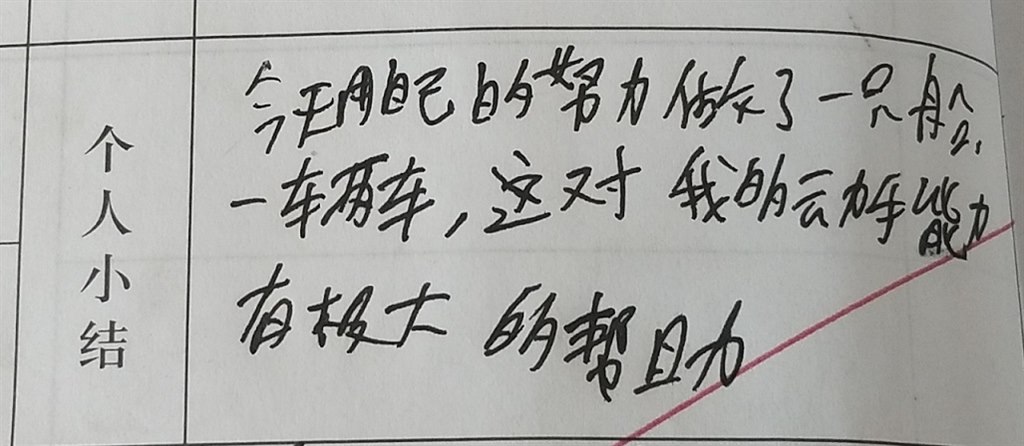 个人小结
今天用自己的努力做了一只船,
一车两车,这对我的动手能力
有极大的帮助